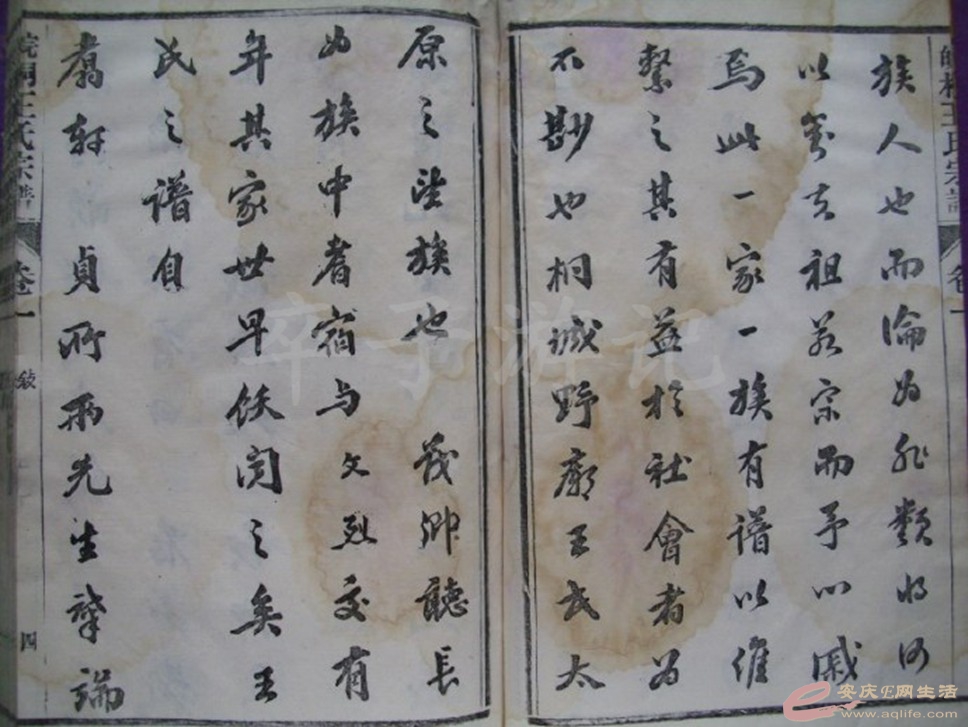 皖桐王氏宗譜
卷一
族人也而淪为非類將何
以對吾祖吾宗而予以戚
焉此一家一族有譜以維
繫之其有益於社會者为
不尠也桐城野廟王氏太
原之望族也 茂卿聽長
为族中耆宿与文烈交有
年其家世早佚闻之矣王
氏之譜自
鶱軒貞所兩先生肇端
皖桐王氏宗譜
卷一
敘
四
辛子游记
安庆E网生活
www.aqlife.com